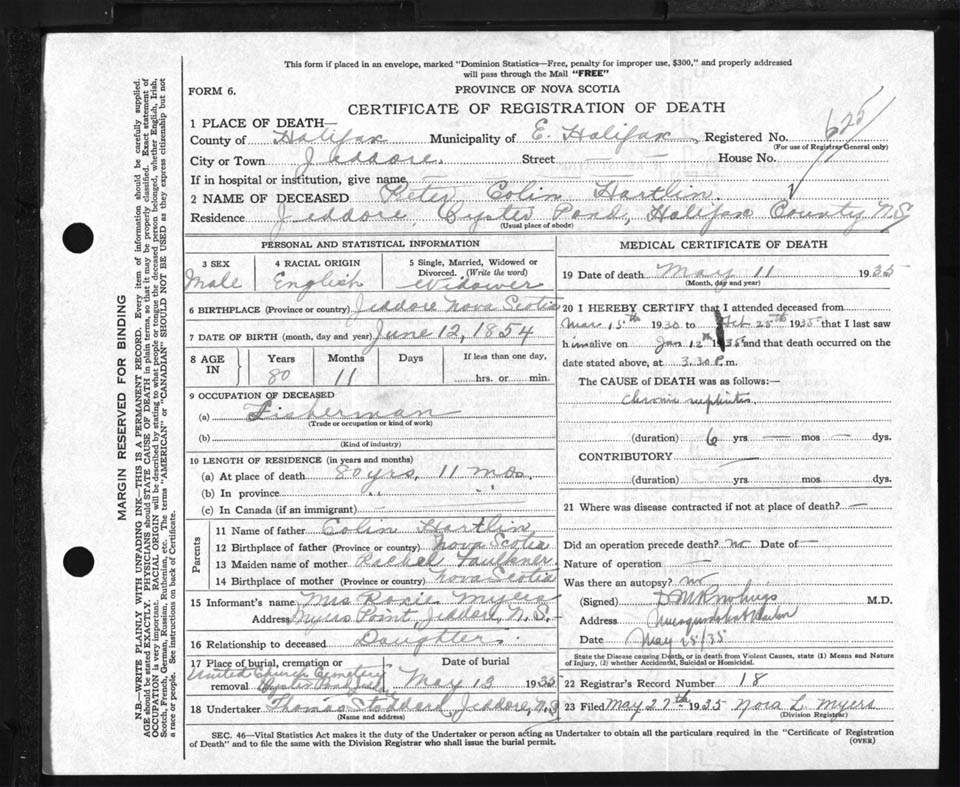 This form if placed in an envelope, marked "Dominion Statistics—Free, penalty for improper use, $300," and properly addressed
will pass through the Mail "FREE"
FORM 6.
PROVINCE OF NOVA SCOTIA
CERTIFICATE OF REGISTRATION OF DEATH
1 PLACE OF DEATH—
County of Halifax Municipality of E. Halifax Registered No. 625
(For use of Registrar General only)
City or Town Jeddore Street — House No.
If in hospital or institution, give name —
2 NAME OF DECEASED Peter Colin Hartlin
Residence Jeddore, Oyster Pond, Halifax County N.S
(Usual place of abode)
PERSONAL AND STATISTICAL INFORMATION
3 SEX Male
4 RACIAL ORIGIN English
5 Single, Married, Widowed or Divorced. (Write the word) Widower
6 BIRTHPLACE (Province or country) Jeddore Nova Scotia
7 DATE OF BIRTH (month, day and year) June 12, 1854
8 AGE IN Years 80 Months 11 Days If less than one day, ........hrs. or ........min.
9 OCCUPATION OF DECEASED
(a) Fisherman
(Trade or occupation or kind of work)
(b)
(Kind of industry)
10 LENGTH OF RESIDENCE (in years and months)
(a) At place of death 80 yrs, 11 mos.
(b) In province " "
(c) In Canada (if an immigrant) —
Parents
11 Name of father Colin Hartlin
12 Birthplace of father (Province or country) Nova Scotia
13 Maiden name of mother Rachel Faulkner
14 Birthplace of mother (Province or country) Nova Scotia
15 Informant's name Mrs Roxie Myers
Address Myers Point, Jeddore, N.S.
16 Relationship to deceased Daughter.
17 Place of burial, cremation or removal United Church Cemetery Oyster Pond
Date of burial May 13 1935
18 Undertaker Thomas Stoddard Jeddore, N.S
(Name and address)
MEDICAL CERTIFICATE OF DEATH
19 Date of death May 11 1935
(Month, day and year)
20 I HEREBY CERTIFY that I attended deceased from
Mar 15th 1930 to Feb 25th 1935 that I last saw
him alive on Jan 12th 1935 and that death occurred on the
date stated above, at 3.30 P.m.
The CAUSE OF DEATH was as follows:—
Chronic nephritis
(duration) 6 yrs — mos — dys.
CONTRIBUTORY —
(duration) yrs. mos. dys.
21 Where was disease contracted if not at place of death? —
Did an operation precede death? no Date of —
Nature of operation —
Was there an autopsy? no
(Signed) M.D.
Address Musquodoboit Harbor
Date May 25/35
State the Disease causing Death, or in death from Violent Causes, state (1) Means and Nature
of Injury, (2) whether Accidental, Suicidal or Homicidal.
22 Registrar's Record Number 18
23 Filed May 27th 1935 Nora L. Myers
(Division Registrar)
SEC. 46—Vital Statistics Act makes it the duty of the Undertaker or person acting as Undertaker to obtain all the particulars required in the "Certificate of Registration
of Death" and to file the same with the Division Registrar who shall issue the burial permit.
(OVER)
MARGIN RESERVED FOR BINDING
N.B.—WRITE PLAINLY WITH UNFADING INK—THIS IS A PERMANENT RECORD. Every item of information should be carefully supplied.
AGE should be stated EXACTLY. PHYSICIANS should STATE CAUSE OF DEATH in plain terms, so that it may be properly classified. Exact statement of
OCCUPATION is very important. RACIAL ORIGIN will be described by stating to what people or tongue the deceased person belonged, whether English, Irish,
Scotch, French, German, Russian, Ruthenian, etc. The terms "AMERICAN" or "CANADIAN" SHOULD NOT BE USED as they express citizenship but not
a race or people. See instructions on back of Certificate.